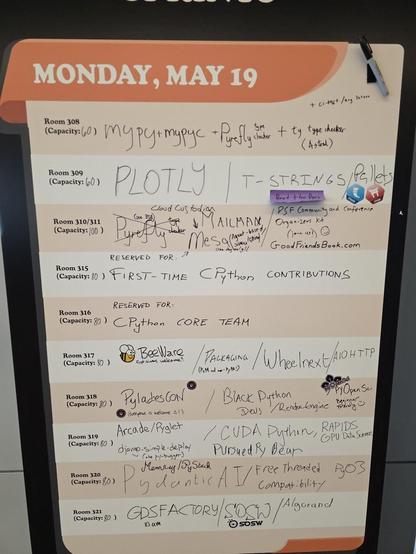 SPRINTS
MONDAY, MAY 19
Room 308
(Capacity: 60)
mypy + mypyc + Pyrefly type checker + ty type checker
(Astral)
Room 309
(Capacity: 60)
PLOTLY / T-STRINGS / Pallets
Room 310/311
(Capacity: 100)
Cloud Custodian
Pyrefly
MAILMAN
Mesa
PSF Community and Conference
Organizers Kit
(join us!)
GoodFriendsBook.com
RESERVED FOR:
Room 315
(Capacity: 80)
FIRST-TIME CPython CONTRIBUTIONS
RESERVED FOR:
Room 316
(Capacity: 80)
CPython CORE TEAM
Room 317
(Capacity: 80)
BeeWare / PACKAGING / Wheelnext / AIOHTTP
Room 318
(Capacity: 80)
PyladiesCON / Black Python
Devs / Render Engine
(everyone is welcome!)
Room 319
(Capacity: 80)
Arcade/Pyglet / CUDA Python, RAPIDS
GPU Data Science
django-simple-deploy
Pursued By Bear
Room 320
(Capacity: 80)
PydanticAI / Free Threaded
Compatibility
Room 321
(Capacity: 80)
GDSFACTORY / SDSW / Algorand
10 am